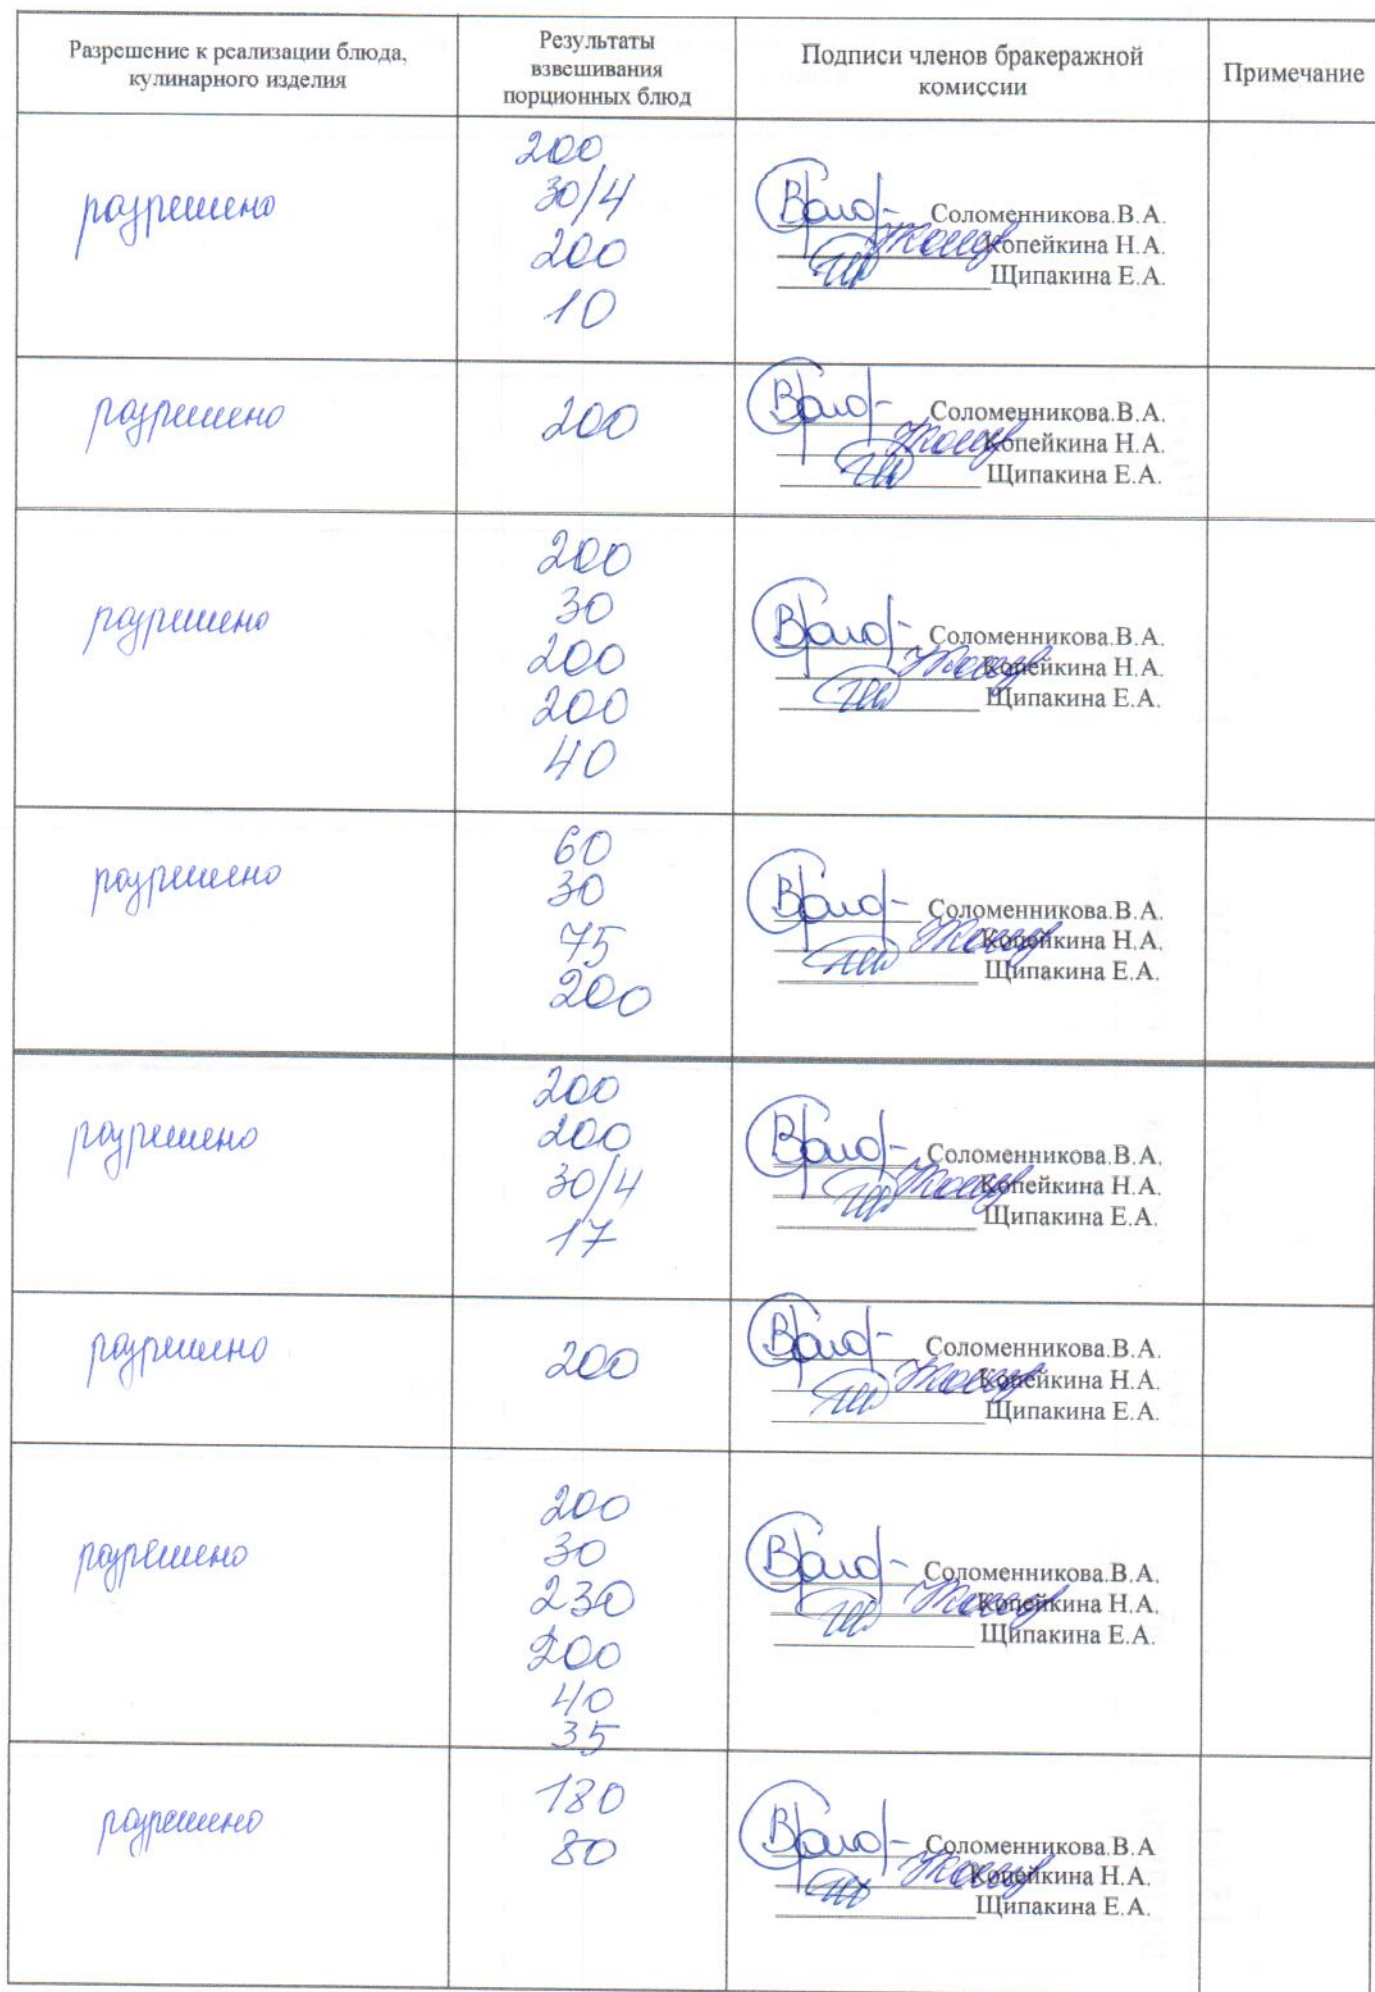 Разрешение к реализации блюда,
кулинарного изделия
Результаты
взвешивания
порционных блюд
Подписи членов бракеражной
комиссии
Примечание
разрешено
200
30/4
200
10
Соломенникова.В.А.
Копейкина Н.А.
Щипакина Е.А.
разрешено
200
Соломенникова.В.А.
Копейкина Н.А.
Щипакина Е.А.
разрешено
200
30
200
200
40
Соломенникова.В.А.
Копейкина Н.А.
Щипакина Е.А.
разрешено
60
30
75
200
Соломенникова.В.А.
Копейкина Н.А.
Щипакина Е.А.
разрешено
200
200
30/4
17
Соломенникова.В.А.
Копейкина Н.А.
Щипакина Е.А.
разрешено
200
Соломенникова.В.А.
Копейкина Н.А.
Щипакина Е.А.
разрешено
200
30
230
200
40
35
Соломенникова.В.А.
Копейкина Н.А.
Щипакина Е.А.
разрешено
180
80
Соломенникова.В.А
Копейкина Н.А.
Щипакина Е.А.